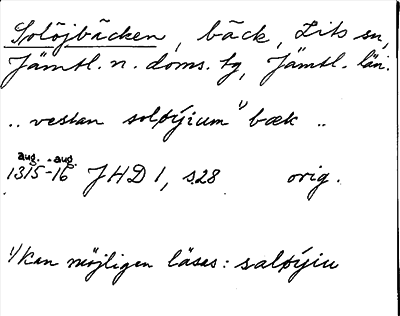 Solöjbäcken, bäck, Lits sn,
Jämtl. n. doms. tg, Jämtl. län.
.. vestan soløýium 1) bæk ..
aug. - aug.
1315-16 JHD 1, s28 orig.
1) Kan möjligen läsas: saløýiu